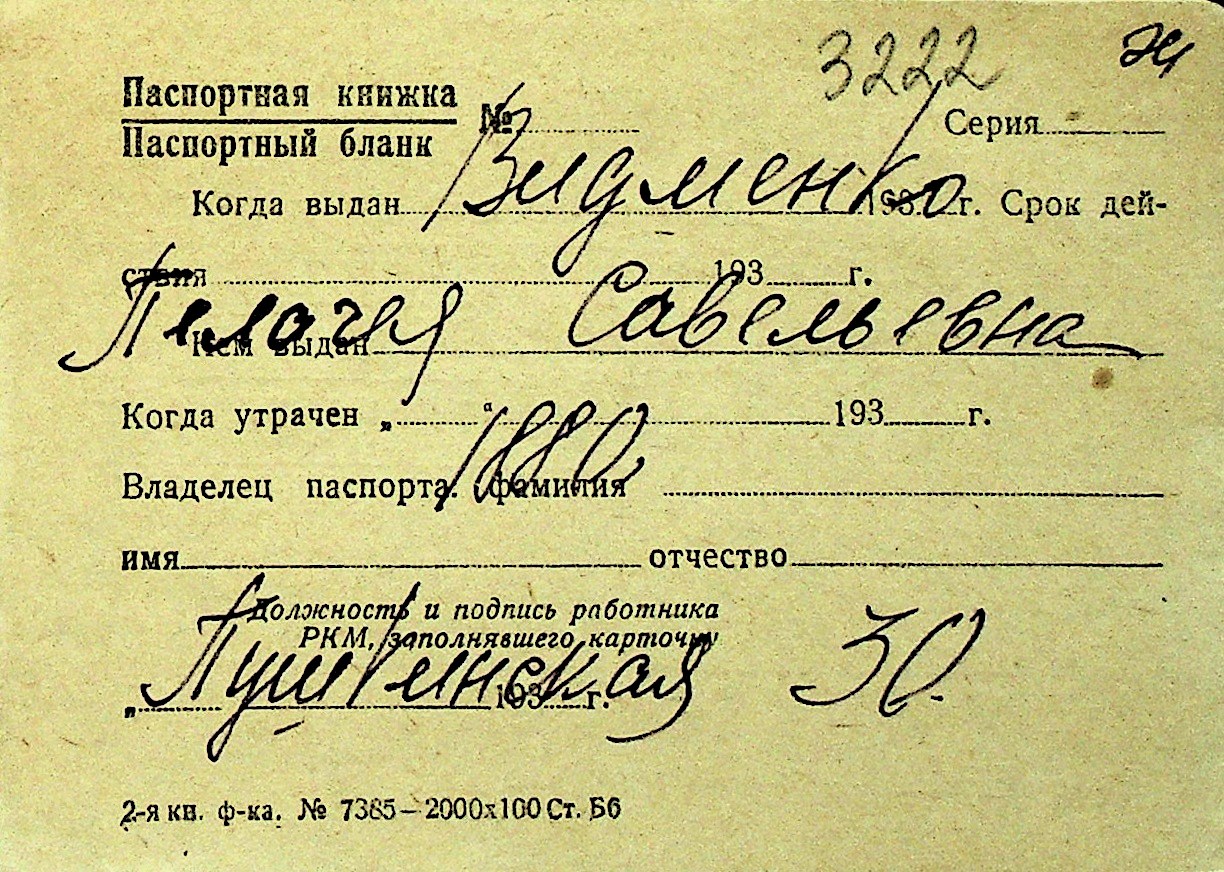 3222
Паспортная книжка № Серия
Паспортный бланк
Видменко
Когда выдан 193 г. Срок дей-
ствия 193 г.
Пелагея Савельевна
Кем выдан
Когда утрачен „ “ 193 г.
1880
Владелец паспорта: фамилия
имя отчество
Должность и подпись работника
РКМ, заполнявшего карточку
Пушкинская 30
„ 193 г.
2-я кн. ф-ка. № 7385—2000x100 Ст. Б6